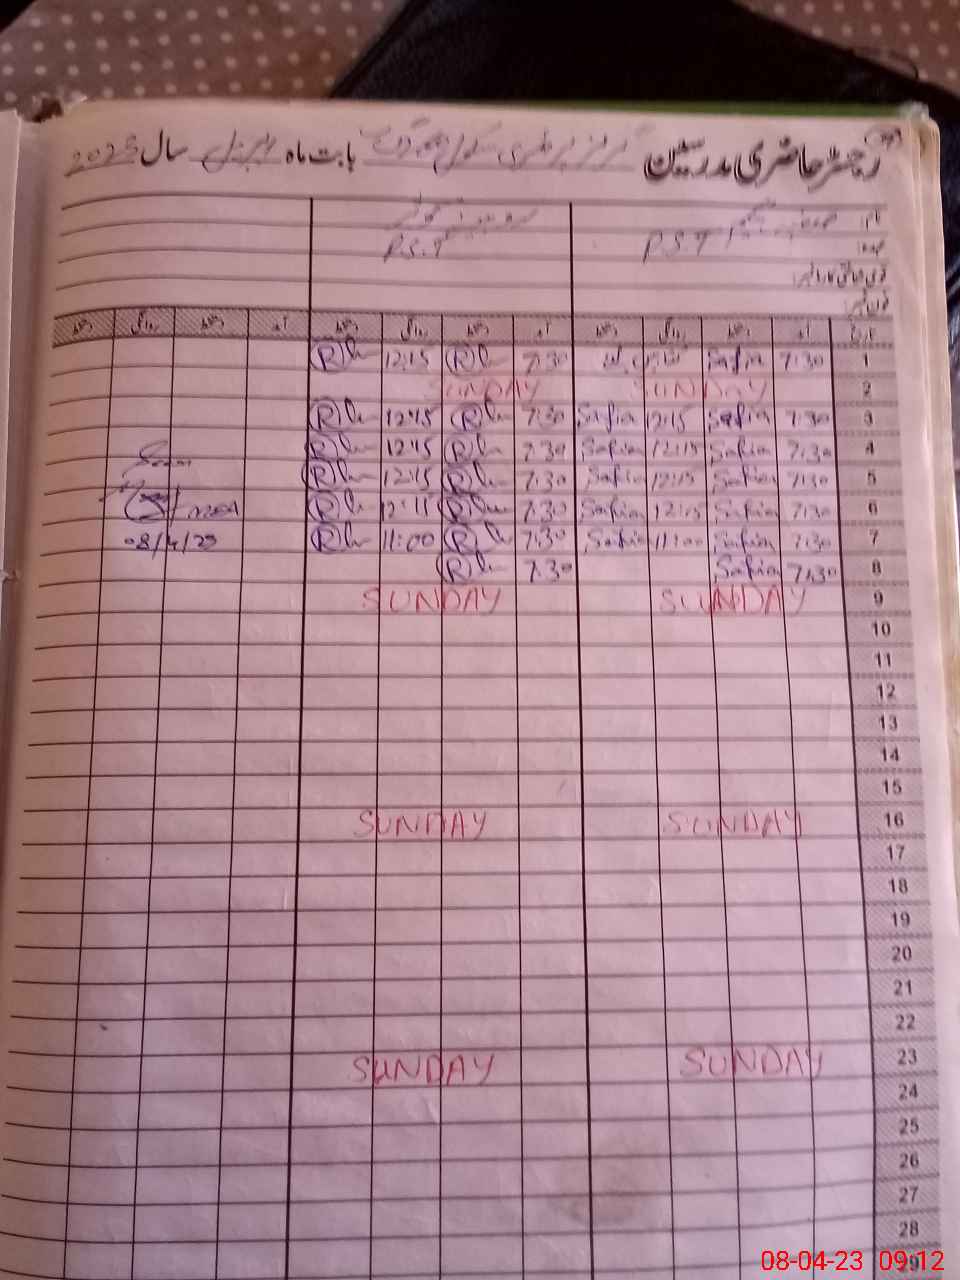 رجسٹر حاضری مدرسین گرلز پرائمری سکول بابت ماہ اپریل سال 2023
نام
عہدہ P.S.T P.S.T
قومی شناختی کارڈ نمبر:
فون نمبر:
تاریخ آمد دستخط روانگی دستخط آمد دستخط روانگی دستخط آمد دستخط روانگی دستخط
1 7:30 Safia 7:30 12:15
2 SUNDAY SUNDAY
3 7:30 Safia 12:15 Safia 7:30 12:15
4 7:30 Safia 12:15 Safia 7:30 12:15
5 7:30 Safia 12:15 Safia 7:30 12:15
6 7:30 Safia 12:15 Safia 7:30
7 7:30 Safia 11:00 Safia 7:30 11:00
8 7:30 Safia 7:30
9 SUNDAY SUNDAY
10
11
12
13
14
15
16 SUNDAY SUNDAY
17
18
19
20
21
22
23 SUNDAY SUNDAY
24
25
26
27
28
29
08/4/23
08-04-23 09:12